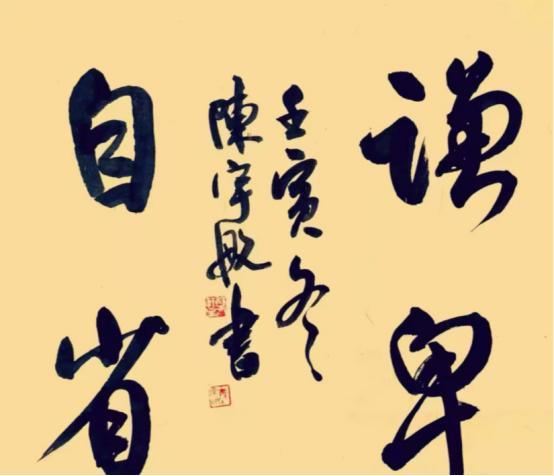 謙卑
自省
壬寅冬
陳宇敏書